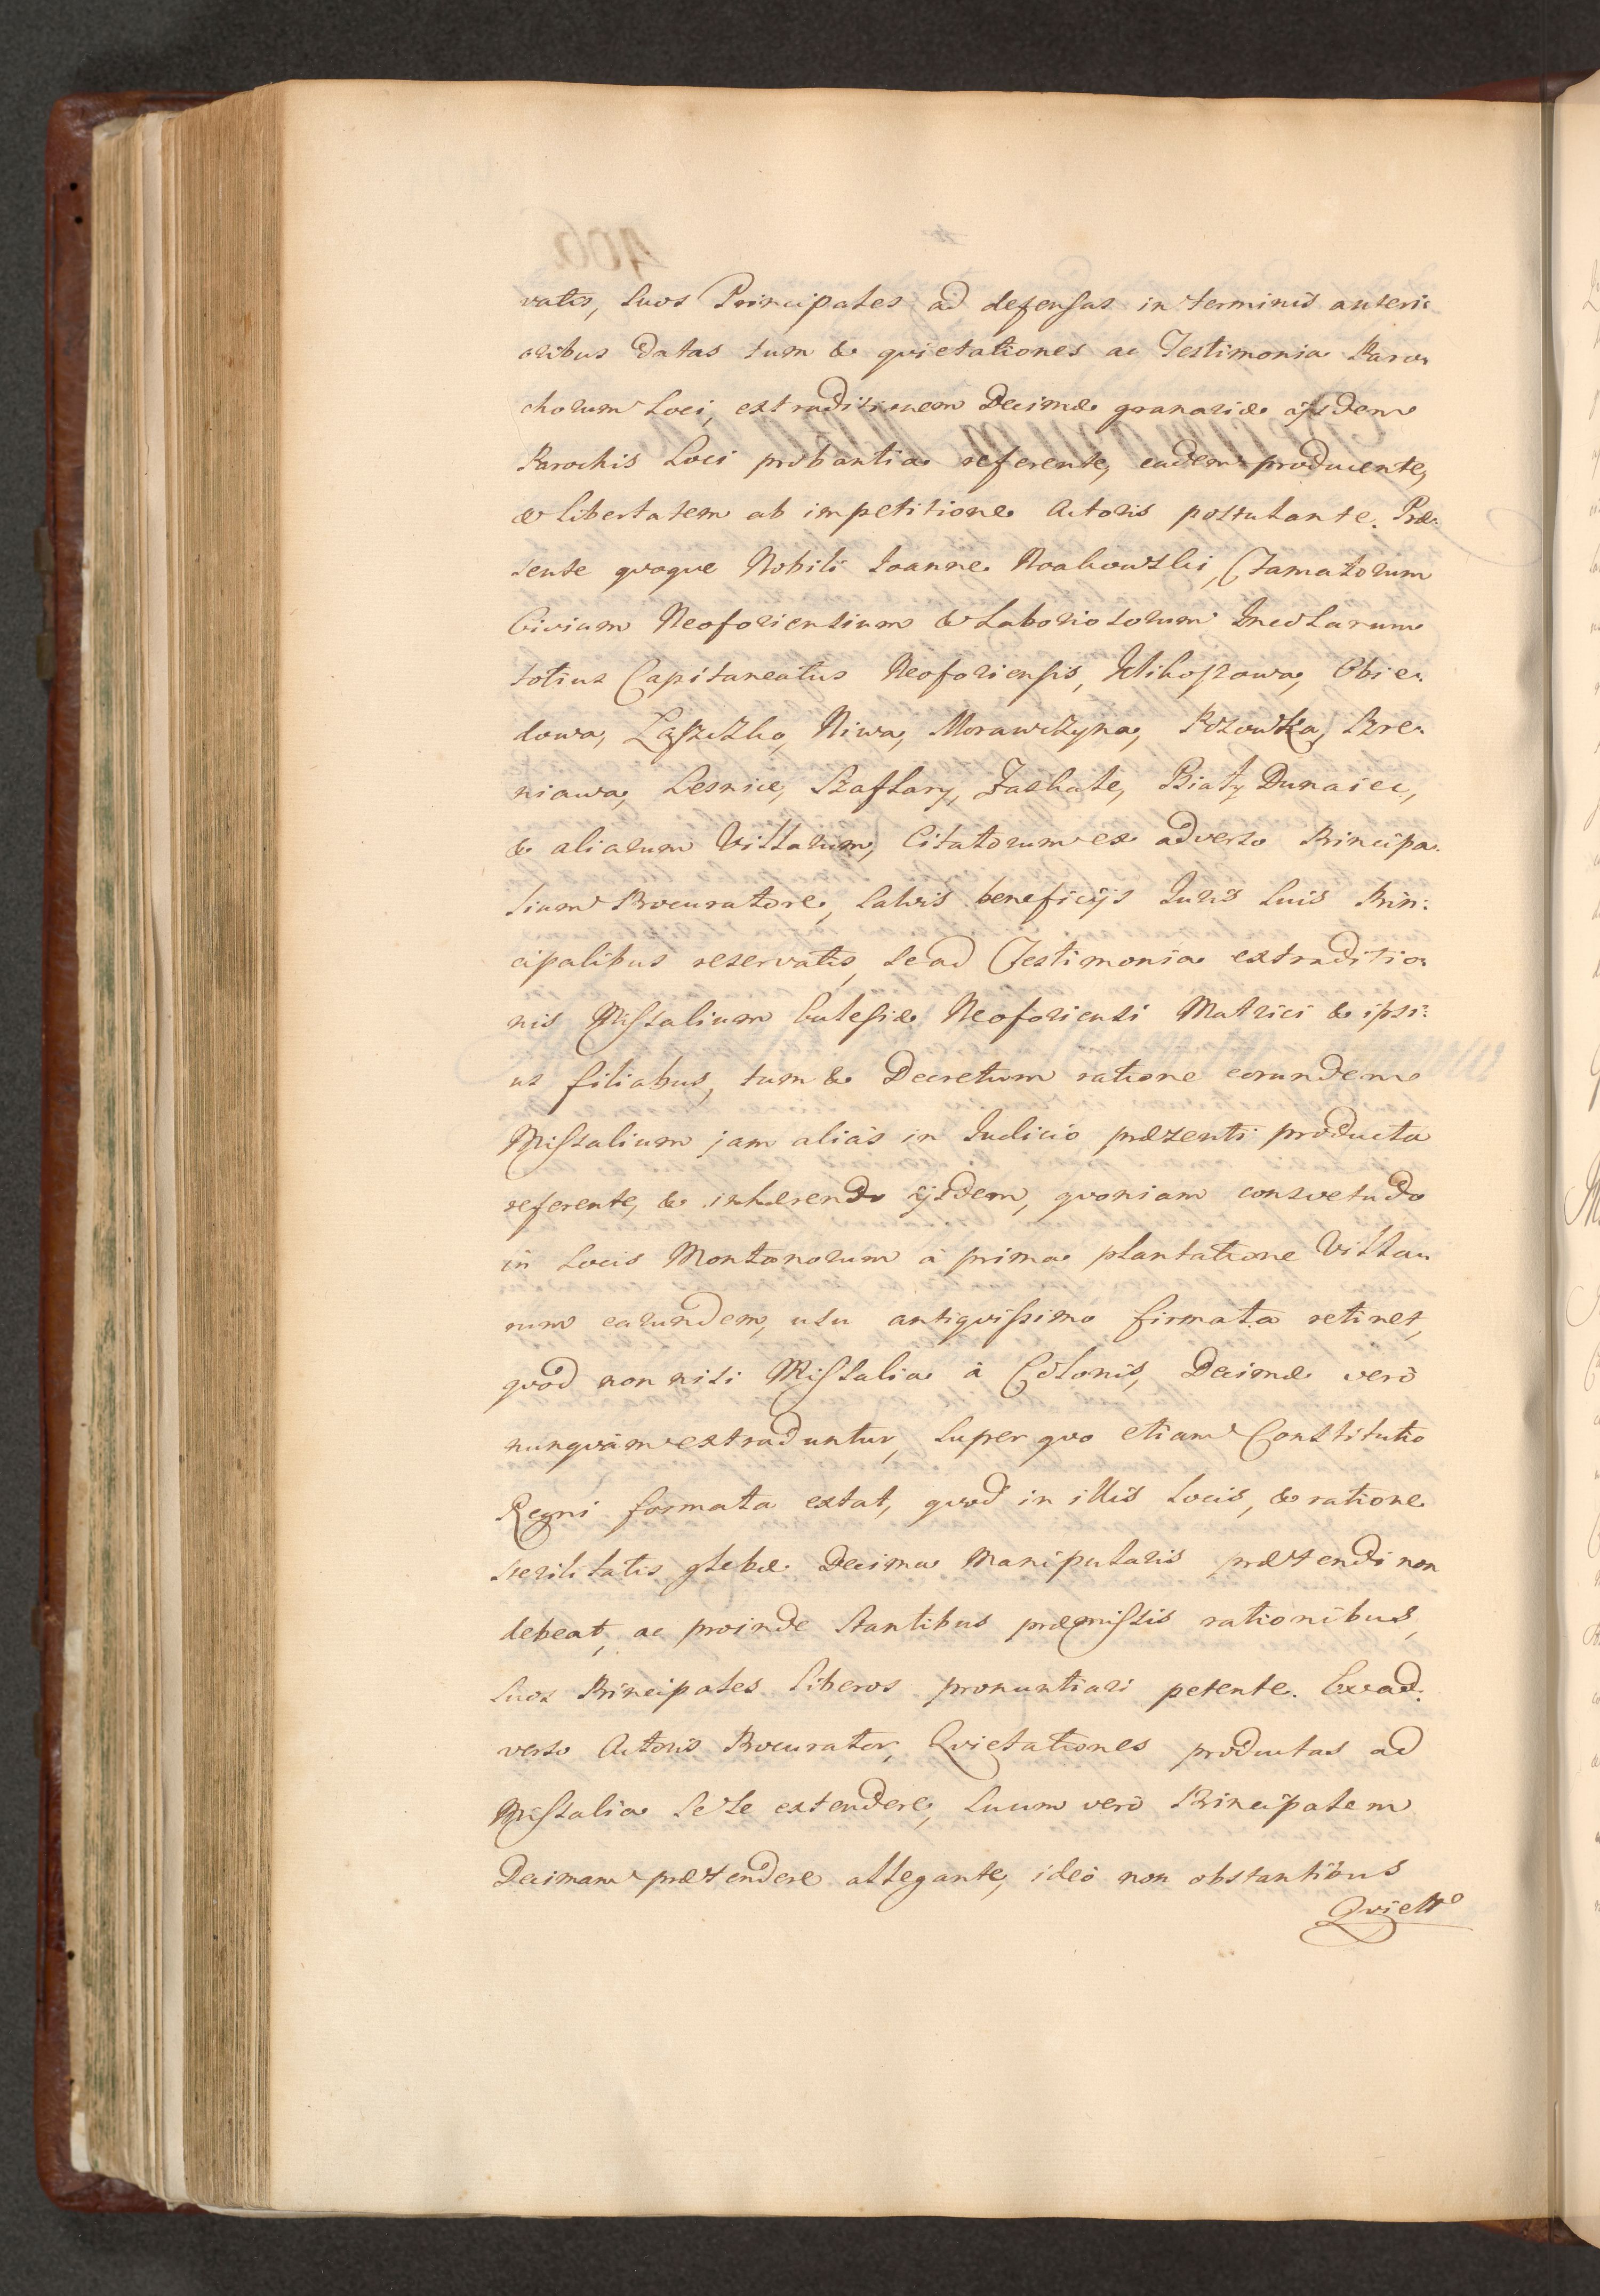 vatis, suos Principales ad defensas in terminis anteri:
oribus datas tum & quietationes ac Testimonia Paro:
chorum Loci, extraditionem Decimæ granariæ ijsdem
Parochis Loci probantia referente, eadem producente,
& libertatem ab impetitione Actoris postulante. Præ:
sente quoque Nobili Ioanne Noakowski, Famatorum
Civium Neoforiensium & Laboriosorum Incolarum
totius Capitaneatus Neoforiensis, Klikoszowa, Obie:
dowa, Niwa, Morawczyna, Pyzowka, Sre:
niawa, Lesnice, Szaflary, Zaskale, Biały Dunaiec,
& aliarum Villarum, Citatorum ex adverso Principa:
lium Procuratore, salvis beneficijs Iuris suis Prin:
cipalibus reservatis, se ad Testimonia extraditio:
nis Missalium Ecclesiæ Neoforiensi Matrici & ipsi:
us filiabus, tum & Decretum ratione eorundem
Missalium jam aliàs in Iudicio præsenti producta
referente, & inhærendo ijsdem, quoniam consvetudo
in Locis Montanorum à prima plantatione Villa:
rum earundem, usu antiquissimo firmata retinet,
quod non nisi Missalia à Colonis, Decimæ verò
nunquàm extraduntur, super quo etiam Constitutio
Regni formata extat, quod in illis Locis, & ratione
sterilitatis glebæ Decima Manipularis prætendi non
debeat, ac proinde stantibus præmissis rationibus,
suos Principales liberos pronuntiari petente. Ex ad:
verso Actoris Procurator, Quietationes productas ad
Missalia sese extendere, suum verò Principalem
Decimam prætendere allegante, ideò non obstantibus